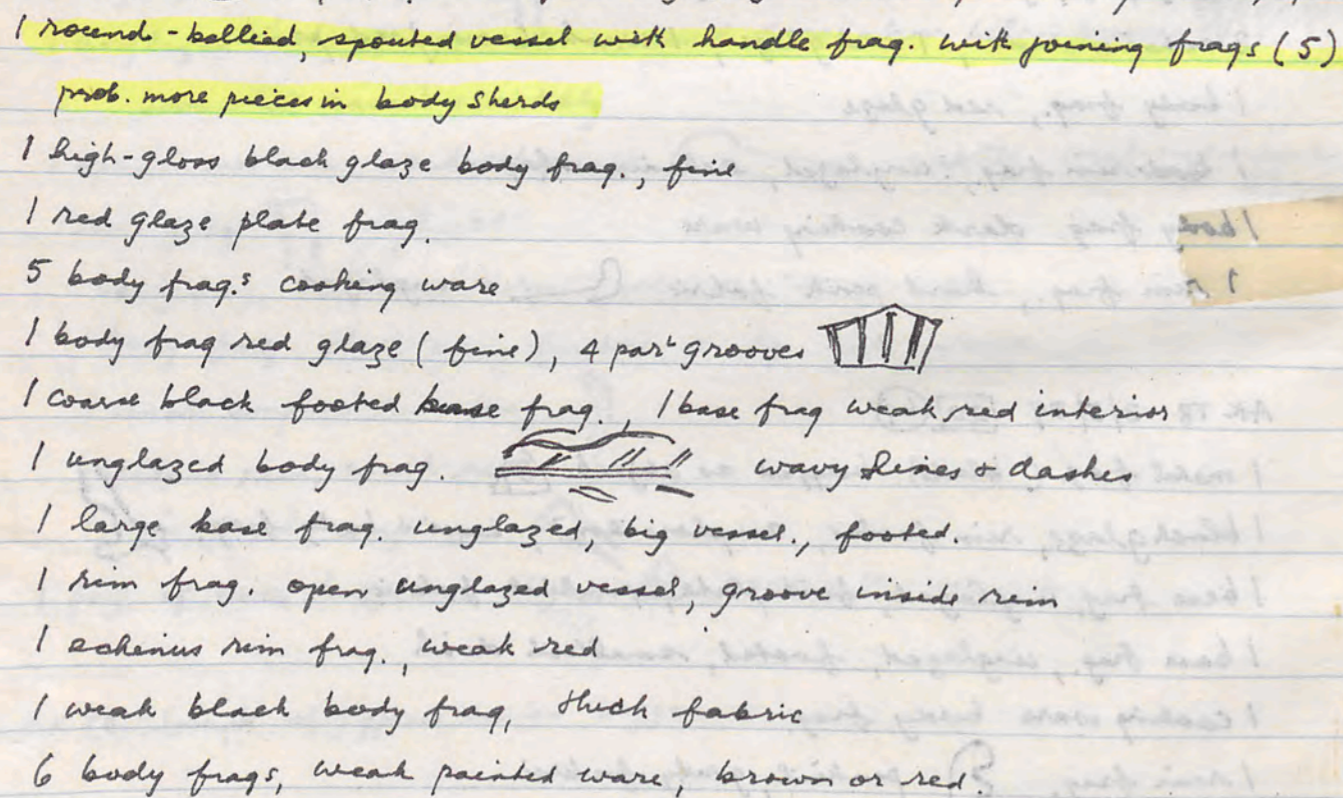 1 round-bellied, spouted vessel with handle frag. with joining frags (5)
prob. more pieces in body sherds
1 high-gloss black glaze body frag., fine
1 red glaze plate frag.
5 body frag.s cooking ware
1 body frag red glaze (fine), 4 parl grooves
1 coarse black footed base frag., 1 base frag weak red interior
1 unglazed body frag. wavy lines & dashes
1 large base frag. unglazed, big vessel., footed.
1 rim frag. open unglazed vessel, groove inside rim
1 echinus rim frag., weak red
1 weak black body frag, thick fabric
6 body frags, weak painted ware, brown or red.